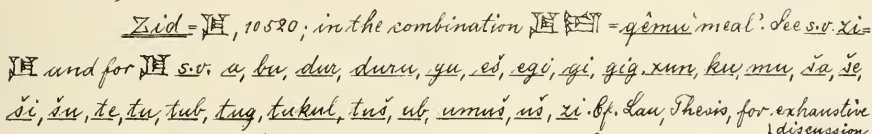 Zid = 𒆪, 10520; in the combination 𒆪 = qêmu 'meal'. See s.v. zi =
𒆪 and for 𒆪 s.v. a, bu, dur, duru, yu, eš, egi, gi, gig, xun, ku, mu, ša, še,
ši, šu, te, tu, tub, tug, tukul, tuš, ub, umuš, uš, zi. Cf. Lau, Thesis, for exhaustive
discussion